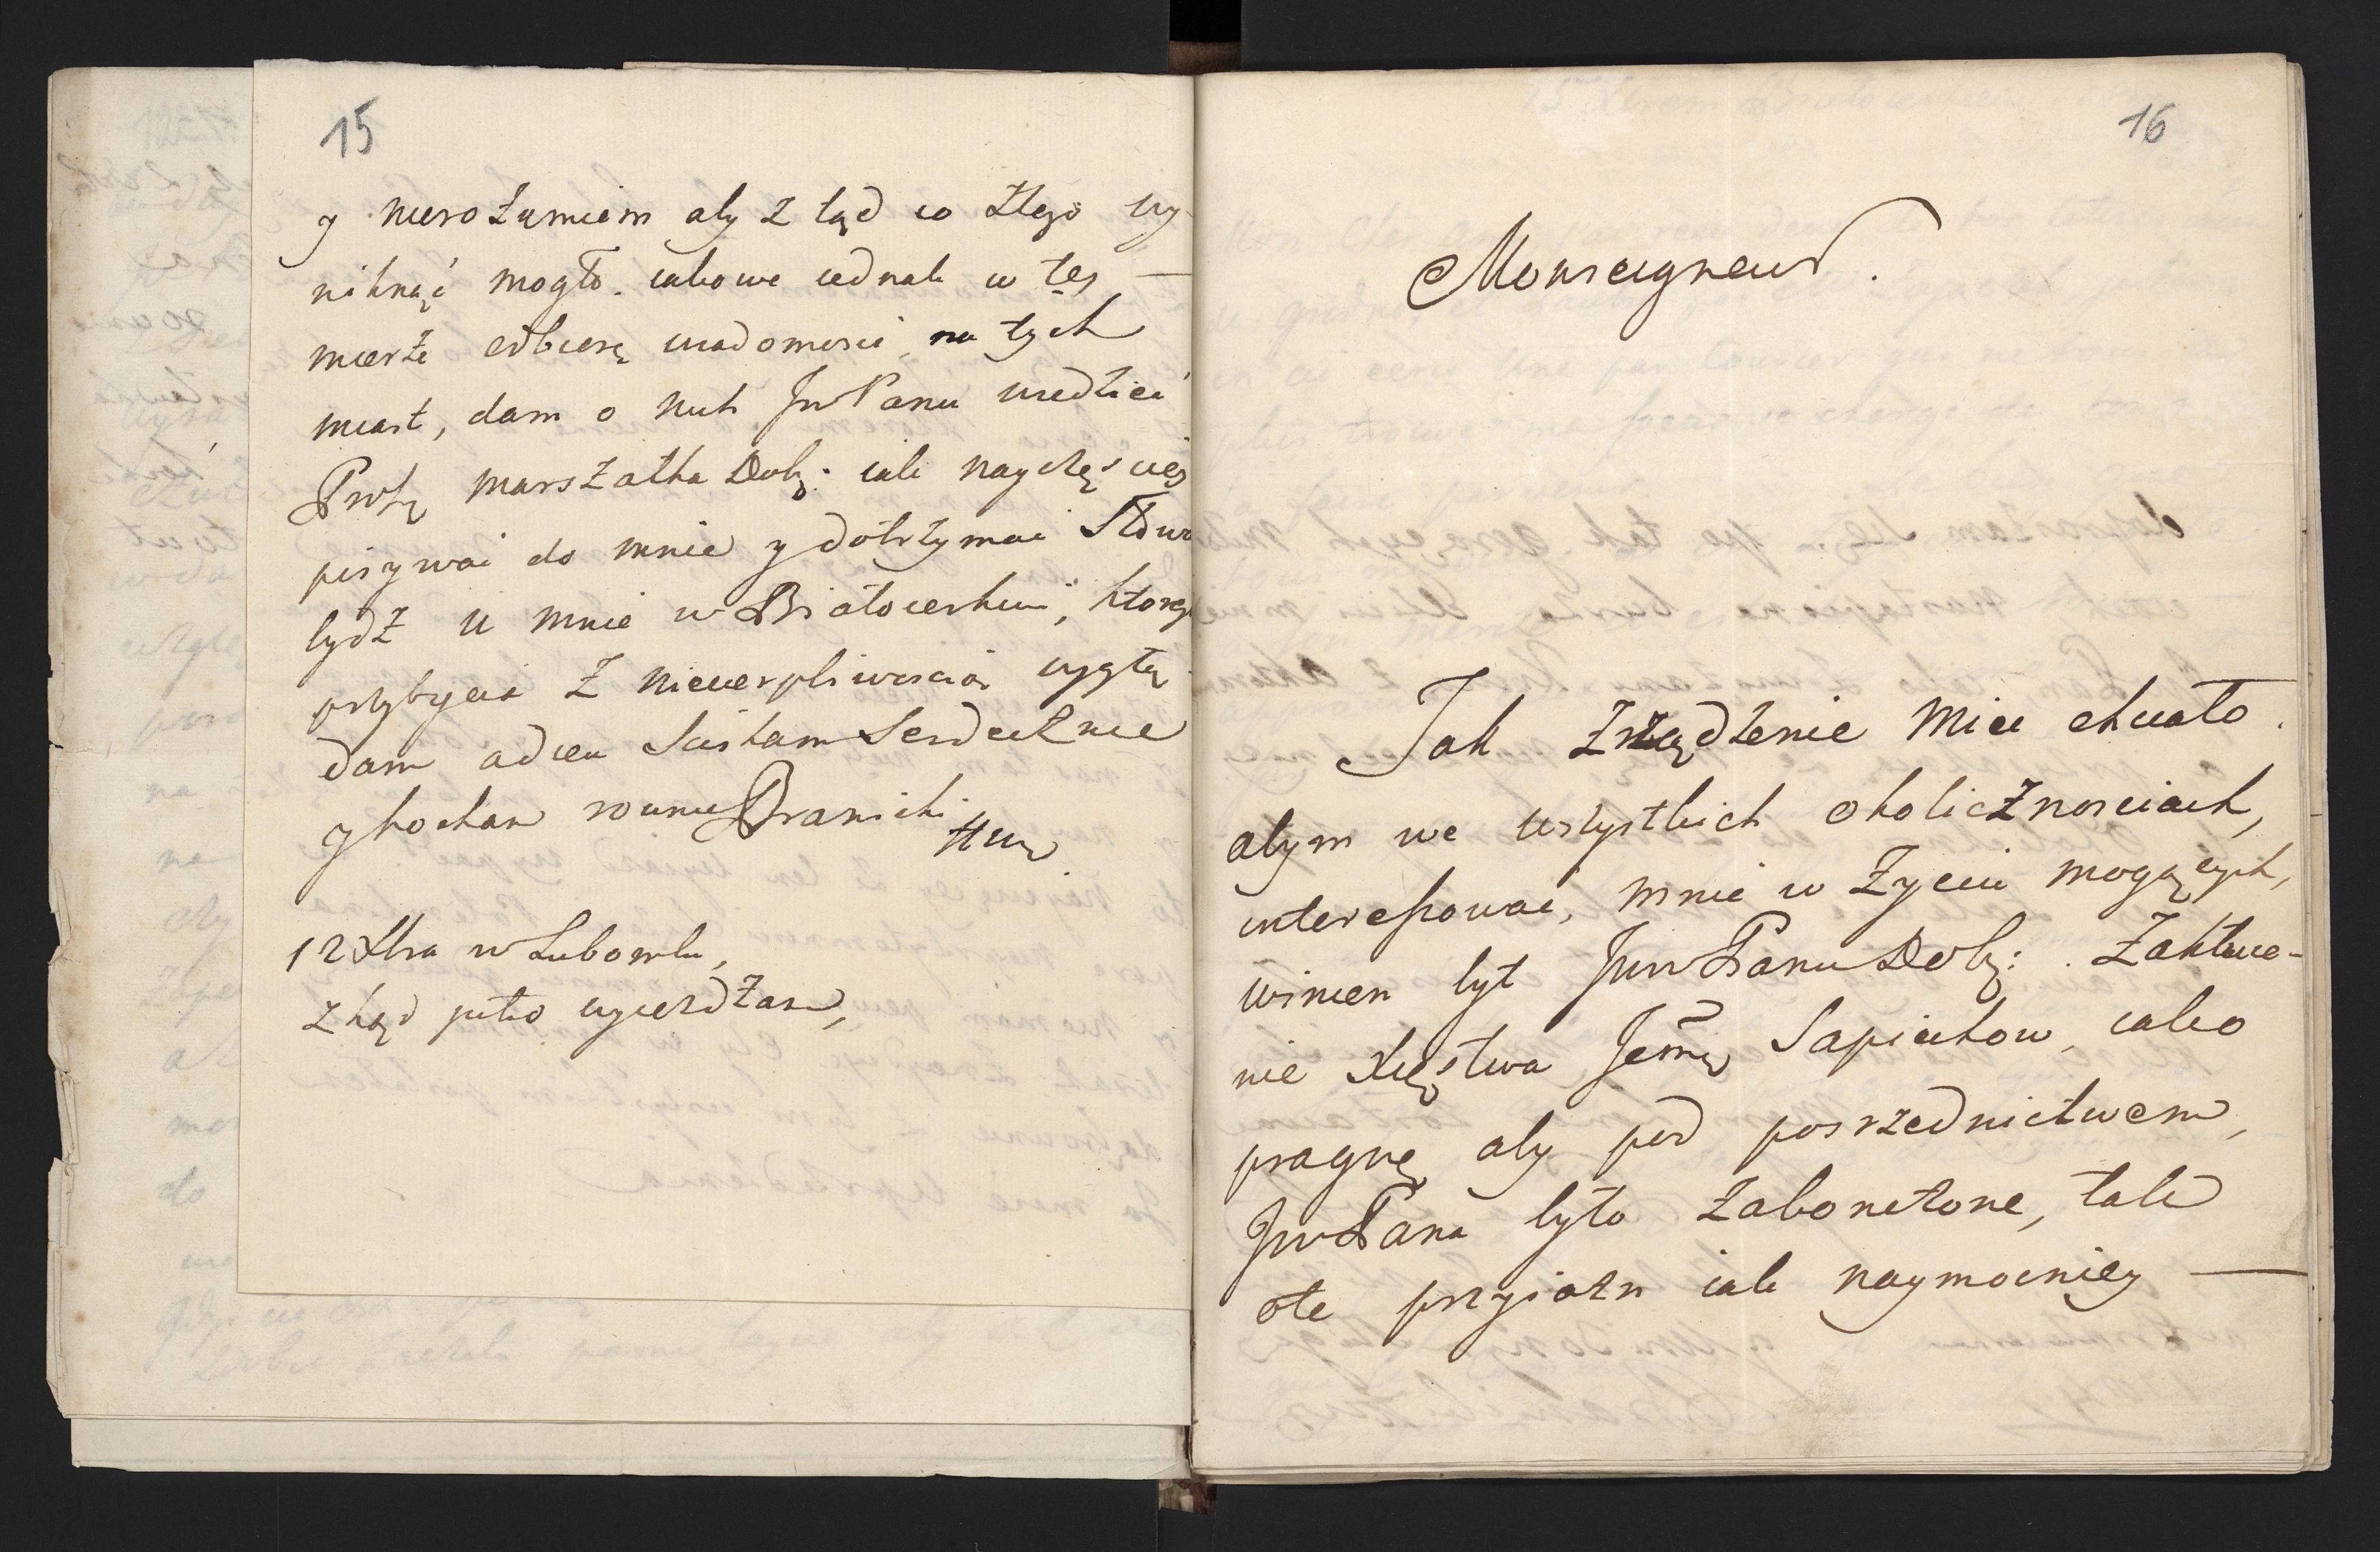 15
y nierozumiem aby z tąd co złego wy-
niknąć mogło. iakowe iednak w tey —
mierze odbiorę wiadomosci, na tych
miast, dam o nich JwPanu wiedzieć
Proszę marszałka Dobr: iak nayczęsciey
pisywai do mnie y dotrzymai Słowa
bydz u mnie w Białocerkwi, ktorego
przybycia z niecierpliwoscią wyglą-
dam adieu Sciskam Serdecznie
y kocham rownie Branicki
HWK
12 Xbra w Lubomlu,
zkąd jutro wyierdzam,
16
Monseigneur.
Jak zrządzenie mieć chciało.
abym we wszystkich okolicznosciach,
interessować, mnie w życiu mogących,
winien był JwwPanu Dobr: Zakłuce-
nie Xięstwa Jchmę Sapiehow, iako
pragnę aby pod posrzednictwem,
JwwPana było zakonczone, tak
ote przyiazn iak naymocniey —